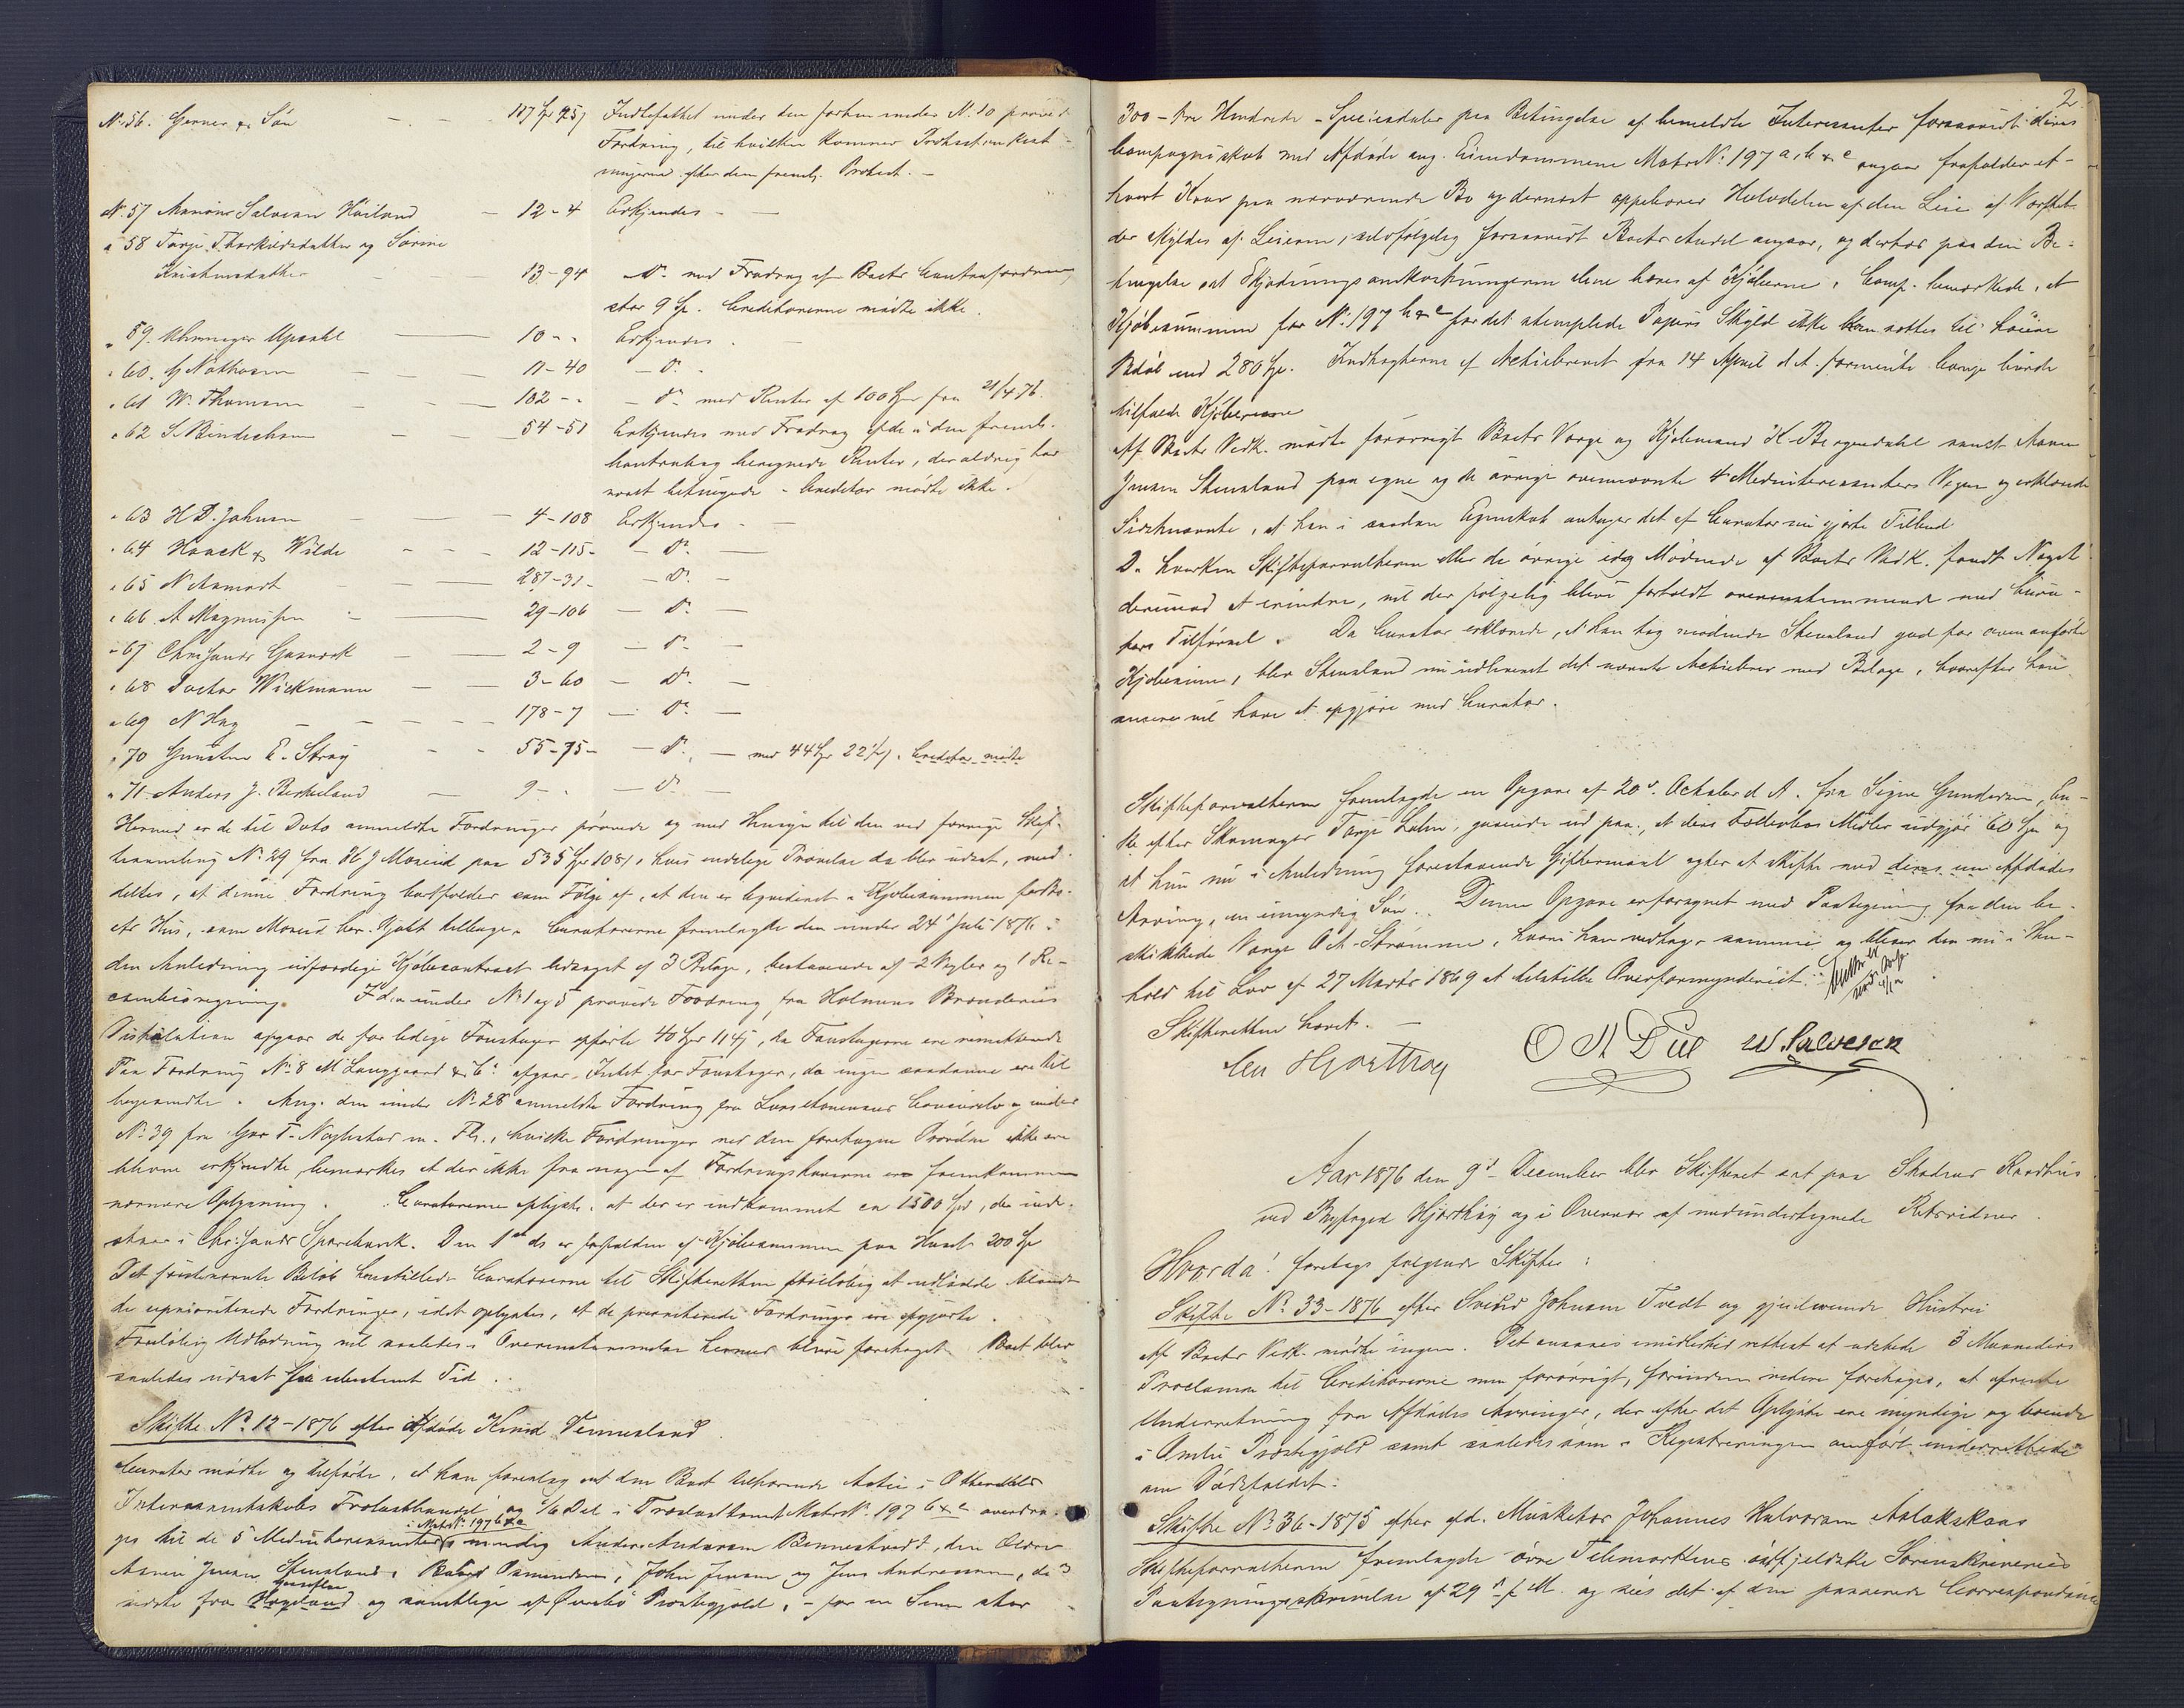 N. 56. Garner & Søn - - 117 Spd 75 s Indbefattet under den forhen under N. 10 prøvede
Fordring, til hvilken kommer Protestomkost-
ningerne efter den freml. Protest. -
N. 57 Salvesen Høiland - 12 - 4 Erkjendes -
" 58 Tarje Tharkildsdatter og Sørine
Kristensdatter - 13 - 94 - do. med Fradrag af Boets Contrafordring
stor 9 Sp. Creditorerne mødte ikke.
" 59. Upsahl - 10 - " Erkjendes.
" 60. Nathasen - 11 - 40 - do. -
" 61 W. Thomsen - 102 - - - do. med Renter af 100 Spd fra 21/4 76.
" 62 S. Bendichsen - 54 - 51 Erkjendes med Fradrag af de i den freml.
beregnede Renter, der aldrig har
været betingede - Creditor mødte ikke.
" 63 H D. Johnsen - 4 - 108 Erkjendes -
" 64 Haack & Wilde - - - 12 - 115 - - do. -
" 65 N. - 287 - 31 - - do. -
" 66. A. Magnussen - 29 - 106 - do. -
" 67 Chrisands Gasværk - 2 - 9 - do. -
" 68 Doctor Wickmann - 3 - 60 - do. -
" 69 N Hay - 178 - 7 - do. -
" 70 Gunsten E. Stray - - 55 - 75 - - do. - med 44 Spd 22 s. Creditor mødte
" 71. Anders J. Birkeland - 9 - . - do. -
Hermed er de til Dato anmeldte Fordringer prøvede og med Hensyn til den ved forrige Skifte-
samling N. 29 fra H J Moseid paa 535 Spd 108 s, hvis endelige Prøvelse da blev udsat, med-
deltes, at denne Fordring bortfalder som Følge af, at den er liqvideret i Kjøbesummen for Bo-
ets Hus, som Moseid har kjøbt tilbage. Curatorerne fremlagde den under 24de Juli 1876 i
den Anledning udfærdige Kjøbecontract ledsaget af 3 Bilage, bestaaende af 2 Vexler og 1 Re-
cambioregning. I den under N. 1 og 5 prøvede Fordring fra Holmens Brænderies
Distilation afgaar de for ledige Foustager opførte 40 Spd 114 s, da Foustagerne ere remitterede
Fra Fordring N. 8 M Langgaard & Co. afgaar Intet for Foustager, da ingen saadanne ere til-
bagesendte. Ang. den under N. 28 anmeldte Fordring fra og under
N. 39 fra T. m. Fl., hvilke Fordringer ved den foretagne Prøvelse ikke ere
blevne erkjendte, bemærkes at der ikke fra nogen af Fordringshaverne er fremkommen
nærmere Oplysning. Curatorerne oplyste, at der er indkommet ca 1500 Spd, der inde-
staar i Chr:sands Sparebank. Den 1ste ds er forfalden af Kjøbesummen paa Huset 200 Sp
Det førstnævnte Beløb henstillede Curatorerne til Skifteretten foreløbig at udlodde blandt
de upriviterede Fordringer, idet oplystes, at de privilerede Fordringer ere opgjorte.
Foreløbig Udlodning vil saaledes i Overensstemmelse hermed blive foretaget. Boet blev
saaledes udsat paa ubestemt Tid.
Skifte No 12 - 1876 efter Afdøde Knud Vennesland.
Curator mødte og tilførte, at han foreslog at den Boet tilhørende Actie i
Interessentskabs Trælasthandel og 1/6 Del i Trælasttomt Matr N. 197 b & c overdra-
i Matr N: 197 b & c
ges til de 5 Medinteressenter nemlig Anders Andersen Bennestvedt, den Ældre
Aanen Jensen Stensland, Baard Osmundsen, John Jensen og Jens Andreassen, de 3
sidste fra Hægeland og samtlige af Øvrebø Præstegjæld, - for en Sum stor
2.
300 - tre Hundrede - Speciedaler paa Betingelse af bemeldte Interessenter forsaavidt deres
Compagniskab med Afdøde ang. Eiendommene Matr N: 197 a, b & c angaar frafalder et-
hvert Krav paa nærværende Bo og dernæst oppebærer Halvdelen af den Leie af Værftet
der skyldes af Leierne, selvfølgelig forsaavidt Boets Andel angaar, og derhos paa den Be-
tingelse at Skjødningsomkostningerne bæres af Kjøberne. Comp. bemærkede, at
Kjøbesummen for N: 197 b & c for det stemplede Papirs Skyld ikke kan sættes til høiere
Beløb end 280 Sp. Indtægterne af Actiebrevet fra 14 April d. A. formente Comp. burde
tilfalde Kjøberne
Af Boets Vedk. mødte forøvrigt Boets Værge og Kjøbmand K. Bergendahl samt Aanen
Jensen Stensland paa egne og de øvrige ovennævnte 4 Medinteressenters Vegne og erklærede
Sidstnævnte, at han i saadan Egenskab antager det af Curator nu gjorte Tilbud
Da hverken Skifteforvalteren eller de øvrige idag Mødende af Boets Vedk. fandt Noget
derimod at erindre, vil der følgelig blive forholdt overensstemmende med Cura-
tors Tilførsel. Da Curator erklærede, at han tog mødende Stensland god for ovenanførte
Kjøbesum, blev Stensland nu udleveret det nævnte Actiebrev med Bilage, hvorefter han
ansees vil have at opgjøre med Curator.
Skifteforvalteren fremlagde en Opgave af 20de October d. A. fra Signe Gundersen, En-
ke efter Skomager Tarje Lohne, gaaende ud paa, at deres Fællesboes Midler udgjør 60 Spd og
at hun nu i Anledning forestaaende Giftermaal agter at skifte med deres een Afdødes
Arving, en umyndig Søn. Denne Opgave er forsynet med Paategning fra den be-
skikkede Værge Och. Strømme, hvori han vedtager samme og bliver den nu i Hen-
hold til Lov af 27 Marts 1869 at tilstille Overformynderiet.
Skifteretten hævet. -
Hjorthøy O A Due W Salvesen
Aar 1876 den 9de December blev Skifteret sat paa Stadens Raadhus
ved Byfoged Hjorthøy og i Overvær af nedundertegnede Retsvidner.
Hvorda! foretages følgende Skifter:
Skifte No 33 - 1876 efter Svend Johnsen Tvedt og gjenlevende Hustru
Af Boets Vedk. mødte ingen. Det ansaaes imidlertid rettest at udstede 3 Maaneders
Proclama til Creditorerne men forøvrigt, førinden videre foretages, at afvente
Underretning fra Afdødes Arvinger, der efter det Oplyste ere myndige og boende
i Omli Præstegjæld samt saaledes som i Registreringen anført underrettede
om Dødsfaldet.
Skifte No 36 - 1875 efter afd. Musketer Johannes Halvorsen Aslakskaas
Skifteforvalteren fremlagde øvre Telemarkens østfjeldske Sorenskriveries
Paategningsskrivelse af 29de f. M. og sees det af den passerede Correspondance